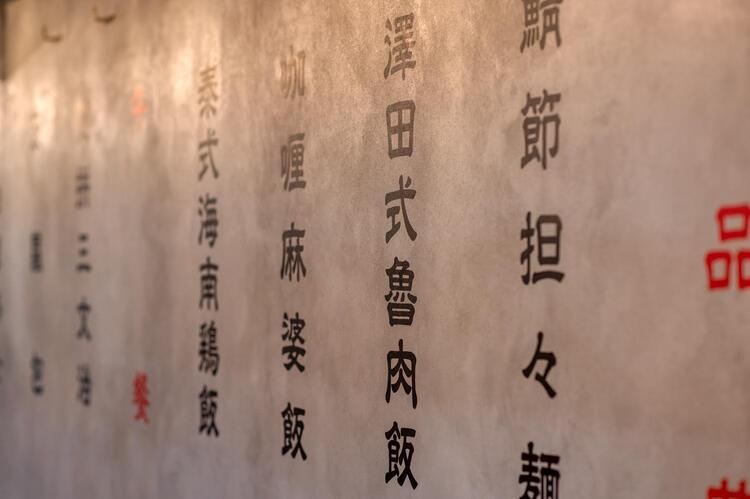 品
鯖節担々麺
澤田式魯肉飯
咖喱麻婆飯
泰式海南鶏飯
餐
三文治
包